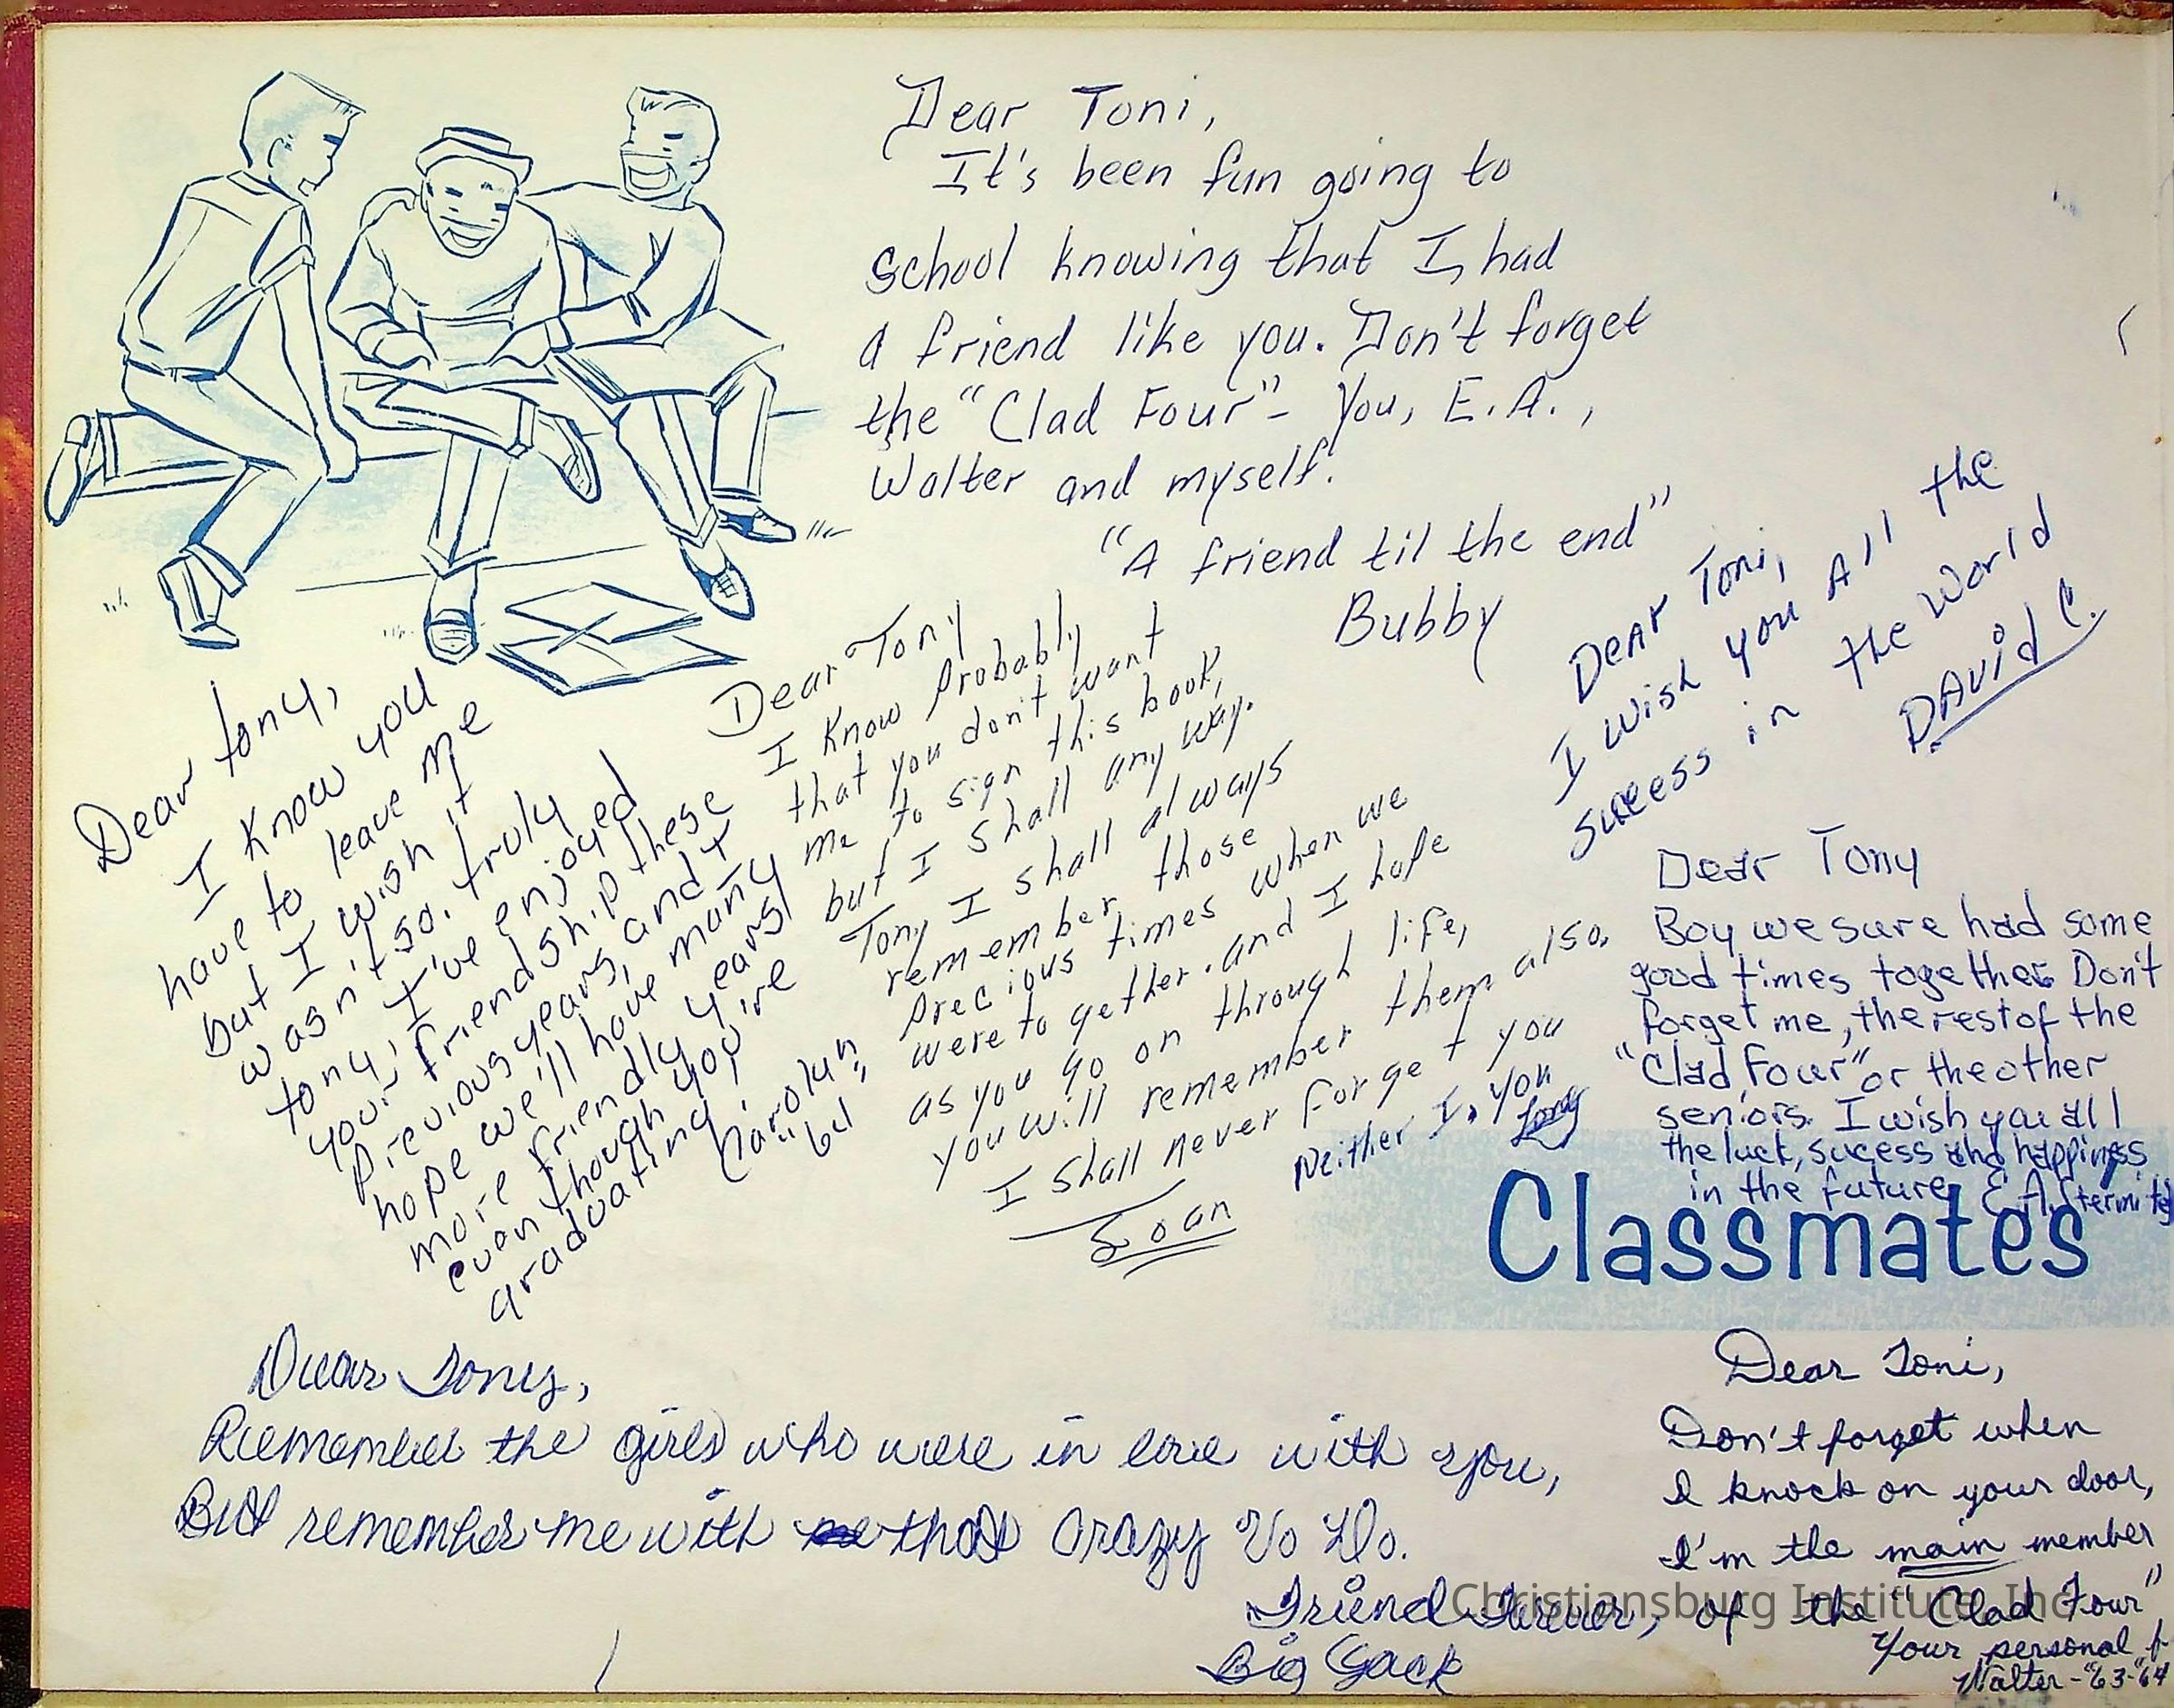 Dear Toni,
It's been fun going to
school knowing that I had
a friend like you. Don't forget
the "Clad Four" - You, E.A.,
Walter and myself.
"A friend til the end"
Bubby
Dear Toni,
I wish you All the
success in the World
DAvid C.
Dear tony,
I know you
have to leave me
but I wish it
wasn't so. truly
tony, I've enjoyed
your friendship these
previous years, and I
hope we'll have many
more friendly years
evan though you're
graduating.
"Carolyn"
Dear Tony
I know probably
that you don't want
me to sign this book,
but I shall any way.
Tony I shall always
remember those
precious times when we
were to gether. and I hope
as you go on through life,
you will remember them also.
I shall never forget you
Neither I, you
Tony
Joan
Dear Tony
Boy we sure had some
good times together Don't
forget me, the rest of the
"Clad Four" or the other
seniors. I wish you all
the luck, sucess and happiness
in the future, E.A.
Classmates
Dear Tony,
Remember the girls who were in love with you,
But remember me with that crazy Yo Yo.
Friend Forever,
Big Jack
Dear Toni,
Don't forget when
I knock on your door,
I'm the main member
of the "Clad Four"
Your personal
Walter - "63-"64
Christiansburg Institute, Inc